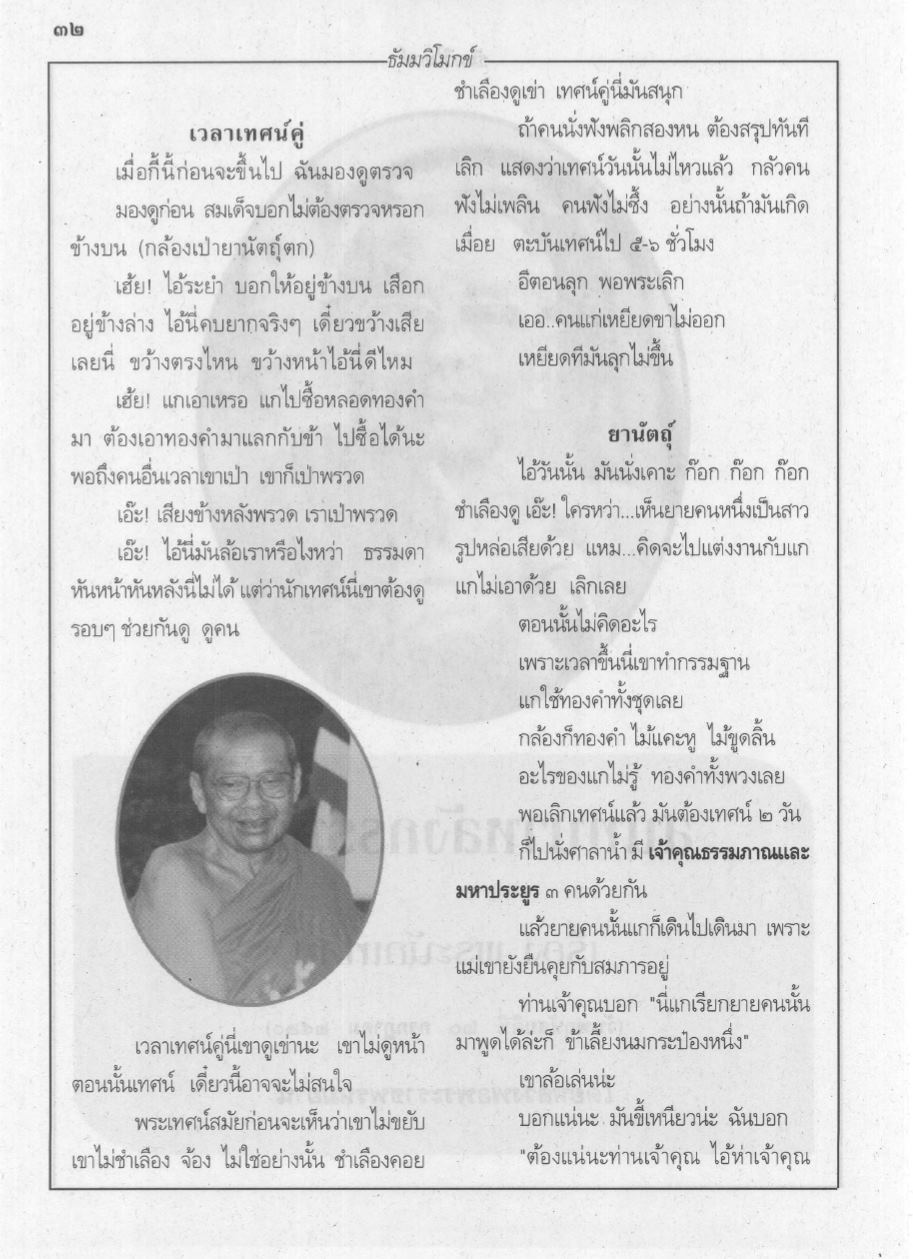 ๓๒
ธัมมวิโมกข์
เวลาเทศน์คู่
เมื่อกี้นี้ก่อนจะขึ้นไป ฉันมองดูตรวจ
มองดูก่อน สมเด็จบอกไม่ต้องตรวจหรอก
ข้างบน (กล้องเป่ายานัตถุ์ตก)
เฮ้ย! ไอ้ระยำ บอกให้อยู่ข้างบน เสือก
อยู่ข้างล่าง ไอ้นี่คบยากจริงๆ เดี๋ยวขว้างเสีย
เลยนี่ ขว้างตรงไหน ขว้างหน้าไอ้นี่ดีไหม
เฮ้ย! แกเอาเหรอ แกไปซื้อหลอดทองคำ
มา ต้องเอาทองคำมาแลกกับข้า ไปซื้อได้นะ
พอถึงคนอื่นเวลาเขาเป่า เขาก็เป่าพรวด
เอ๊ะ! เสียงข้างหลังพรวด เราเป่าพรวด
เอ๊ะ! ไอ้นี่มันล้อเราหรือไงหว่า ธรรมดา
หันหน้าหันหลังนี่ไม่ได้ แต่ว่านักเทศน์นี่เขาต้องดู
รอบๆ ช่วยกันดู ดูคน
เวลาเทศน์คู่นี่เขาดูเข่านะ เขาไม่ดูหน้า
ตอนนั้นเทศน์ เดี๋ยวนี้อาจจะไม่สนใจ
พระเทศน์สมัยก่อนจะเห็นว่าเขาไม่ขยับ
เขาไม่ชำเลือง จ้อง ไม่ใช่อย่างนั้น ชำเลืองคอย
ชำเลืองดูเข่า เทศน์คู่นี่มันสนุก
ถ้าคนนั่งฟังพลิกสองหน ต้องสรุปทันที
เลิก แสดงว่าเทศน์วันนั้นไม่ไหวแล้ว กลัวคน
ฟังไม่เพลิน คนฟังไม่ซึ้ง อย่างนั้นถ้ามันเกิด
เมื่อย ตะบันเทศน์ไป ๕-๖ ชั่วโมง
อีตอนลุก พอพระเลิก
เออ..คนแก่เหยียดขาไม่ออก
เหยียดทีมันลุกไม่ขึ้น
ยานัตถุ์
ไอ้วันนั้น มันนั่งเคาะ ก๊อก ก๊อก ก๊อก
ชำเลืองดู เอ๊ะ! ใครหว่า...เห็นยายคนหนึ่งเป็นสาว
รูปหล่อเสียด้วย แหม...คิดจะไปแต่งงานกับแก
แกไม่เอาด้วย เลิกเลย
ตอนนั้นไม่คิดอะไร
เพราะเวลาขึ้นนี่เขาทำกรรมฐาน
แกใช้ทองคำทั้งชุดเลย
กล้องก็ทองคำ ไม้แคะหู ไม้ขูดลิ้น
อะไรของแกไม่รู้ ทองคำทั้งพวงเลย
พอเลิกเทศน์แล้ว มันต้องเทศน์ ๒ วัน
ก็ไปนั่งศาลาน้ำ มี เจ้าคุณธรรมภาณและ
มหาประยูร ๓ คนด้วยกัน
แล้วยายคนนั้นแกก็เดินไปเดินมา เพราะ
แม่เขายังยืนคุยกับสมภารอยู่
ท่านเจ้าคุณบอก "นี่แกเรียกยายคนนั้น
มาพูดได้ล่ะก็ ข้าเลี้ยงนมกระป๋องหนึ่ง"
เขาล้อเล่นน่ะ
บอกแน่นะ มันขี้เหนียวน่ะ ฉันบอก
"ต้องแน่นะท่านเจ้าคุณ ไอ้ห่าเจ้าคุณ